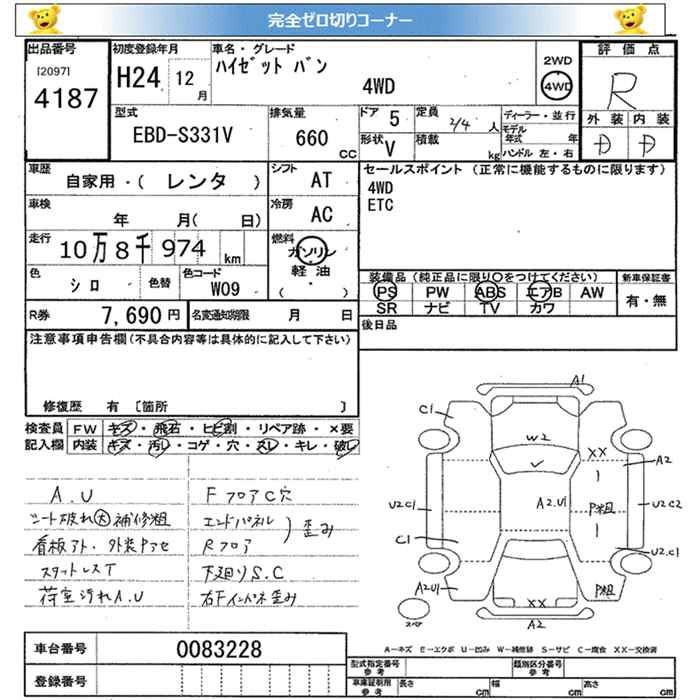 完全ゼロ切りコーナー
出品番号 [2097] 4187
初度登録年月 H24 12月
車名・グレード ハイゼット バン 4WD
2WD 4WD
評価点 R
外装 内装 D D
型式 EBD-S331V
排気量 660 cc
ドア 5
形状 V
定員 2/4 人
積載 kg
ディーラー・並行
モデル年式 年
ハンドル 左・右
車歴 自家用・( レンタ )
シフト AT
車検 年 月( 日)
冷房 AC
走行 10万8千974 km
燃料 ガソリン 軽油・( )
色 シロ 色替
色コード W09
R券 7,690円
名変通知期限 月 日
セールスポイント(正常に機能するものに限ります)
4WD
ETC
装備品(純正品に限り○をつけてください)
PS PW ABS エアB AW
SR ナビ TV カワ
新車保証書 有・無
後日品
注意事項申告欄(不具合内容等は具体的に記入して下さい)
修復歴 有 〔箇所 〕
検査員記入欄
FW キズ・飛石・ヒビ割・リペア跡・×要
内装 キズ・汚レ・コゲ・穴・スレ・キレ・破レ
A.U
シート破れ大 補修粗
看板アト・外装Pアセ
スタットレスT
荷室汚れA.U
FフロアC穴
エンドパネル
Rフロア
歪み
下廻りS.C
右Fインパネ歪み
A1
C1
W2
XX
A2
U2C1
A2.U1
P粗
U2C2
C1
U2.C1
A2U1
P粗
XX
A2
スペア
A-キズ E-エクボ U-凹み W-補修跡 S-サビ C-腐食 XX-交換済
車台番号 0083228
登録番号
型式指定番号 参考
類別区分番号 参考
車庫証明用 参考 長さ cm 幅 cm 高さ cm